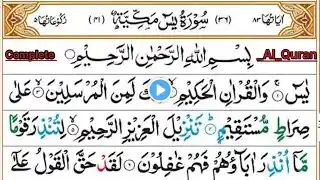 اٰیَاتُهَا ٨٣ (٣٦) سُوْرَةُ يٰسٓ مَكِّيَّةٌ (٤١) رُكُوْعَاتُهَا ٥
Complete
_Al_Quran
بِسْمِ اللّٰهِ الرَّحْمٰنِ الرَّحِيْمِ
يٰسٓ ۚ وَالْقُرْاٰنِ الْحَكِيْمِ ۙ اِنَّكَ لَمِنَ الْمُرْسَلِيْنَ ۙ عَلٰى
صِرَاطٍ مُّسْتَقِيْمٍ ؕ تَنْزِيْلَ الْعَزِيْزِ الرَّحِيْمِ ۙ لِتُنْذِرَ قَوْمًا
مَّاۤ اُنْذِرَ اٰبَآؤُهُمْ فَهُمْ غٰفِلُوْنَ لَقَدْ حَقَّ الْقَوْلُ عَلٰۤى